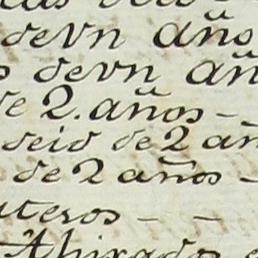 de vn año
de vn añ
de 2. años -
seis de 2 añ
de 2 años -
uteros - -
Ahixados